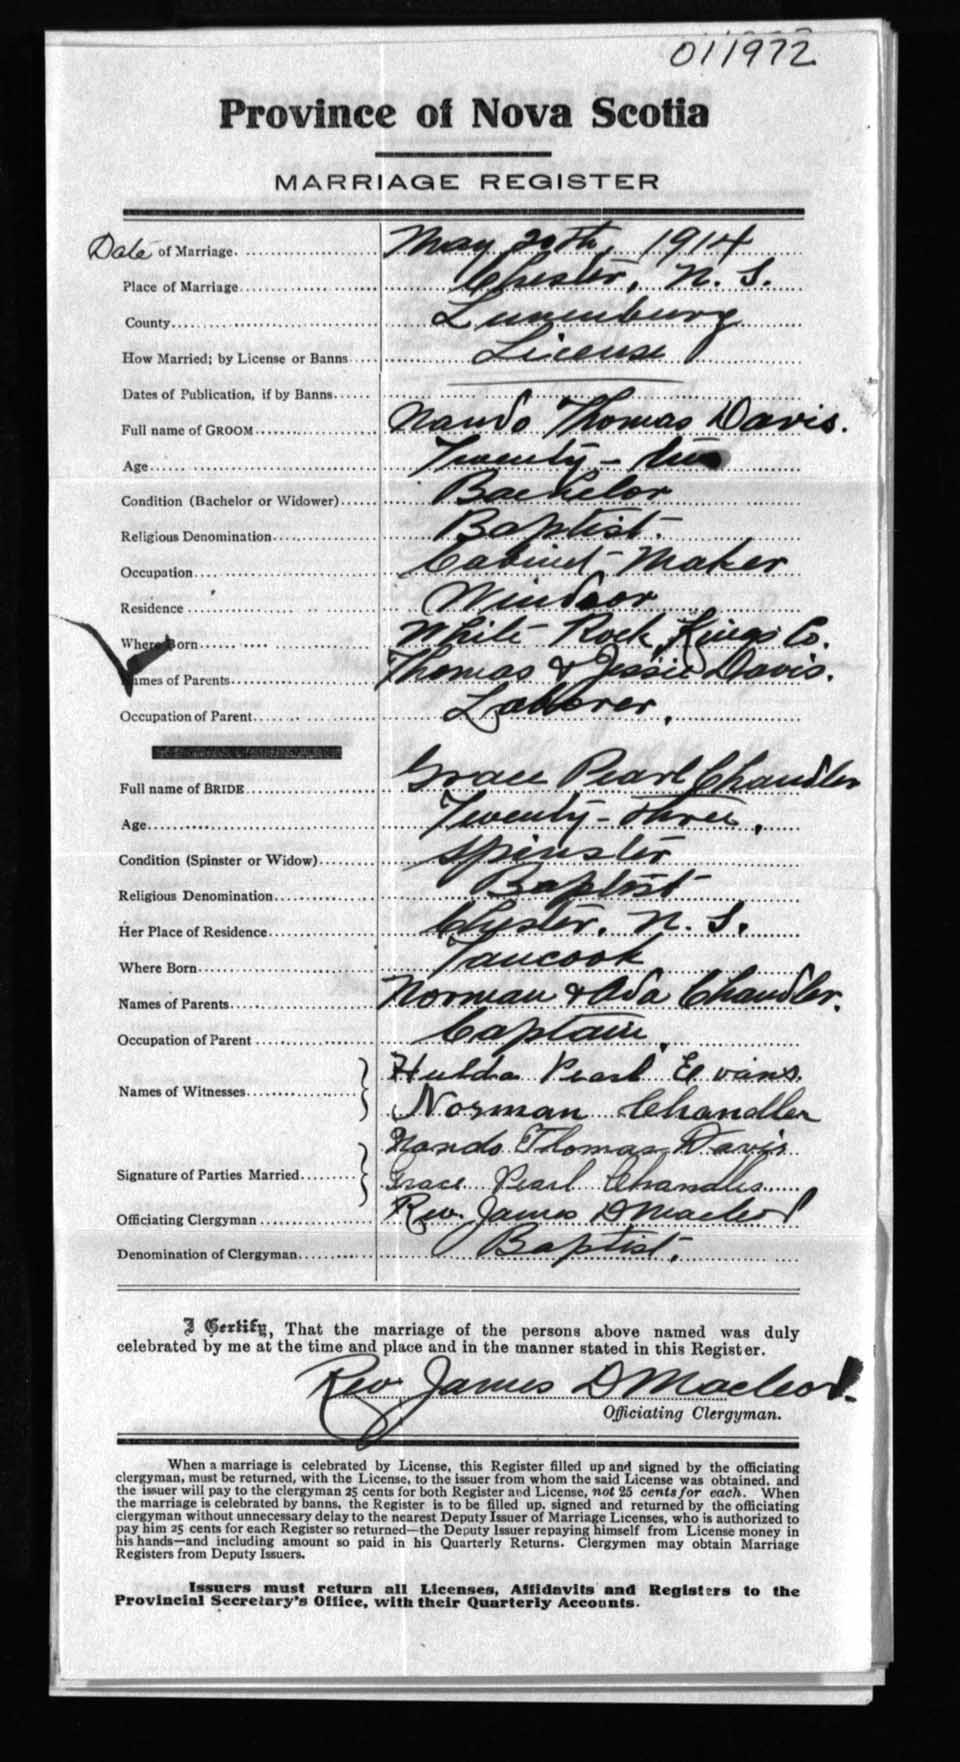 011972
Province of Nova Scotia
MARRIAGE REGISTER
Date of Marriage May 20th, 1914
Place of Marriage Chester, N. S.
County Lunenburg
How Married; by License or Banns License
Dates of Publication, if by Banns
Full name of GROOM Nando Thomas Davis.
Age Twenty-
Condition (Bachelor or Widower) Bachelor
Religious Denomination Baptist.
Occupation Cabinet-Maker
Residence Windsor
Where Born White Rock, Kings Co.
Names of Parents Thomas & Jessie Davis.
Occupation of Parent Laborer.
Full name of BRIDE Grace Pearl Chandler
Age Twenty-three.
Condition (Spinster or Widow) Spinster
Religious Denomination Baptist
Her Place of Residence Chester, N. S.
Where Born Tancook
Names of Parents Norman & Ada Chandler.
Occupation of Parent Captain.
Names of Witnesses Hulda Pearl Evans.
Norman Chandler
Signature of Parties Married Nando Thomas Davis
Grace Pearl Chandler
Officiating Clergyman Rev. James D Macleod
Denomination of Clergyman Baptist.
I Certify, That the marriage of the persons above named was duly
celebrated by me at the time and place and in the manner stated in this Register.
Rev. James D Macleod.
Officiating Clergyman.
When a marriage is celebrated by License, this Register filled up and signed by the officiating
clergyman, must be returned, with the License, to the issuer from whom the said License was obtained, and
the issuer will pay to the clergyman 25 cents for both Register and License, not 25 cents for each. When
the marriage is celebrated by banns, the Register is to be filled up, signed and returned by the officiating
clergyman without unnecessary delay to the nearest Deputy Issuer of Marriage Licenses, who is authorized to
pay him 25 cents for each Register so returned—the Deputy Issuer repaying himself from License money in
his hands—and including amount so paid in his Quarterly Returns. Clergymen may obtain Marriage
Registers from Deputy Issuers.
Issuers must return all Licenses, Affidavits and Registers to the
Provincial Secretary's Office, with their Quarterly Accounts.